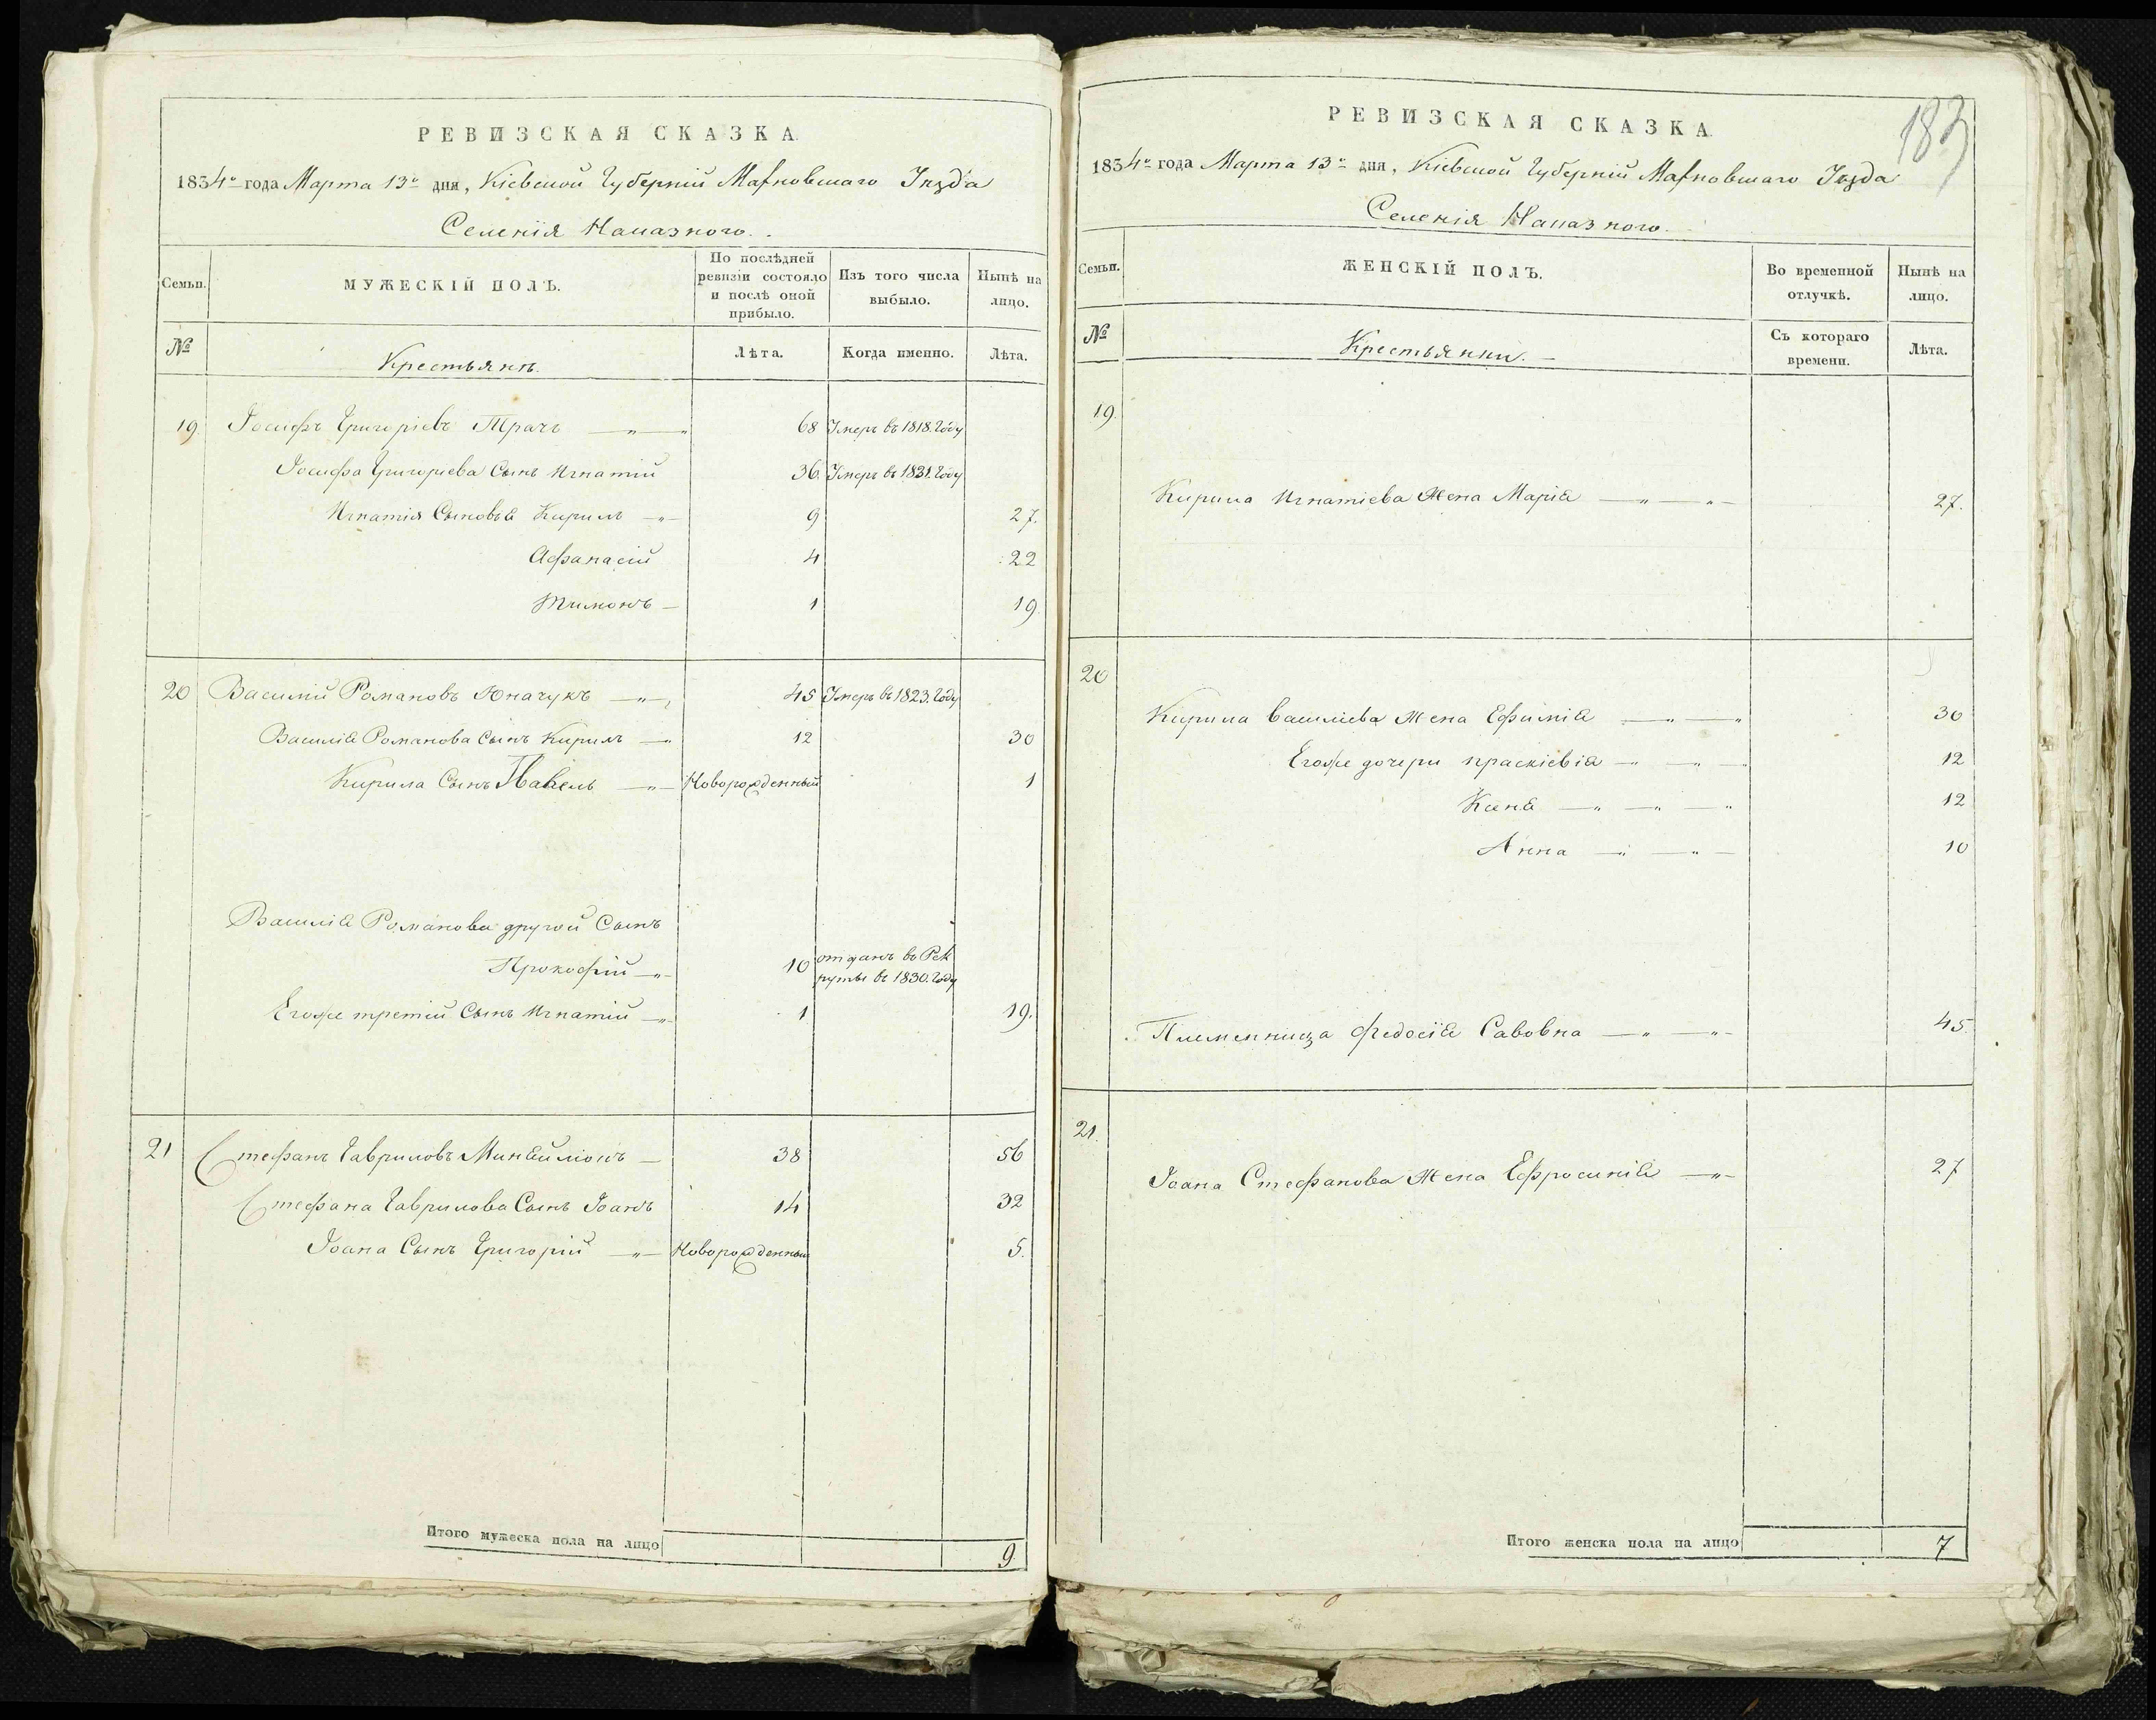 РЕВИЗСКАЯ СКАЗКА
1834го года Марта 13го дня, Кіевской Губерніи Махновскаго Уѣзда
Селенія Наказного.
Семьи.
МУЖЕСКІЙ ПОЛЪ.
По послѣдней ревизіи состояло и послѣ оной прибыло.
Изъ того числа выбыло.
Нынѣ на лицо.
№
Крестьянѣ.
Лѣта.
Когда именно.
Лѣта.
19. Іосифъ Григоріевъ Ткачъ 68 Умеръ въ 1818. Году
Іосифа Григорьева Сынъ Игнатій 36. Умеръ въ 1831. Году
Игнатія Сыновья Кирилъ 9 27.
Афанасій 4 22
Тимонъ 1 19.
20 Василій Романовъ 45 Умеръ въ 1823. Году
Василія Романова Сынъ Кирилъ 12 30
Кирила Сынъ Павелъ Новорожденный 1
Василія Романова другой Сынъ
Прокофій 10 отданъ въ Рек
руты въ 1830. Году
Егоже третій Сынъ Игнатій 1 19.
21 Стефанъ Гавриловъ 38 56
Стефана Гаврилова Сынъ Іоанъ 14 32
Іоана Сынъ Григорій Новорожденный 5.
Итого мужеска пола на лицо 9
183
РЕВИЗСКАЯ СКАЗКА.
1834го года Марта 13го дня, Кіевской Губерніи Махновскаго Уѣзда
Селенія Наказного.
Семьи.
ЖЕНСКІЙ ПОЛЪ.
Во временной отлучкѣ.
Нынѣ на лицо.
№
Крестьянки.
Съ котораго времени.
Лѣта.
19.
Кирила Игнатіева Жена Марія 27.
20
Кирила Василіева Жена Ефимія 30
Егоже дочери праскіевія 12
Ксеня 12
Анна 10
Племенница Федосія Савовна 45.
21.
Іоана Стефанова Жена Ефросинія 27
Итого женска пола на лицо 7